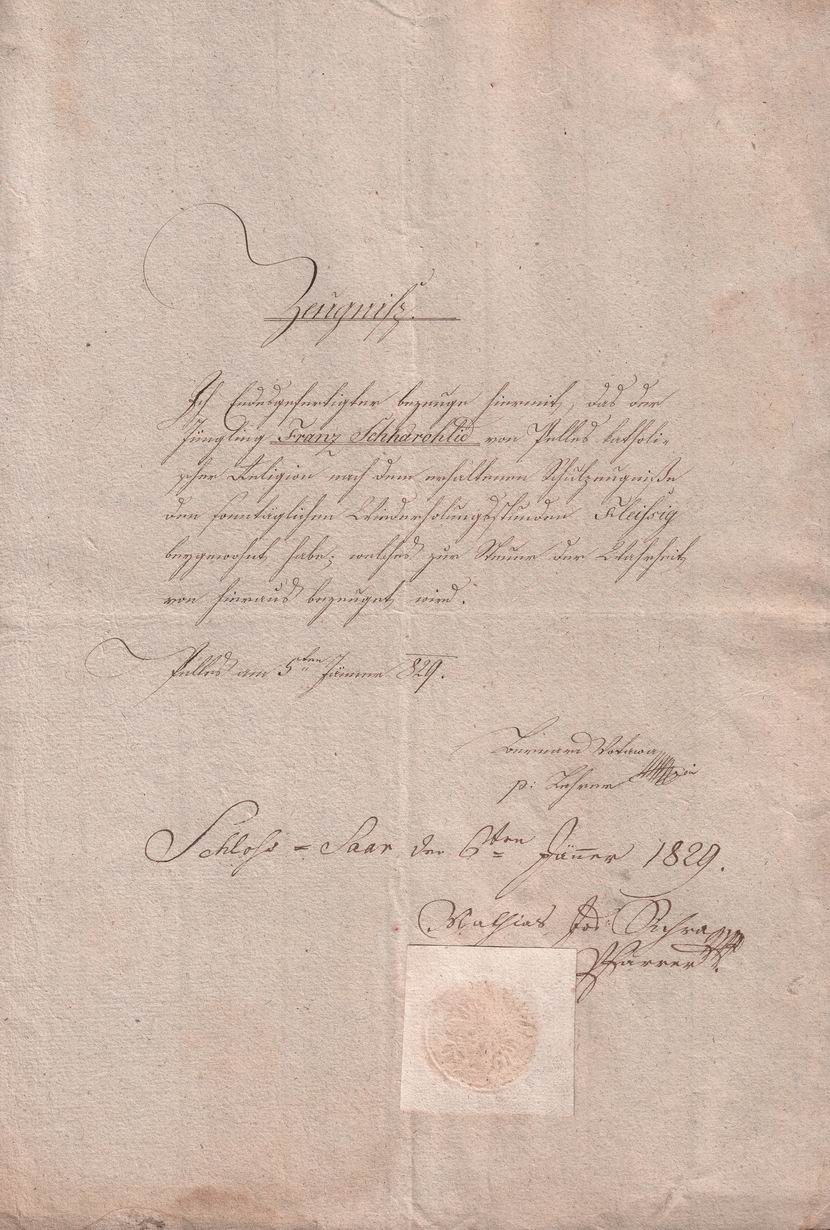 Zeugniß.
Ich Endesgefertigter bezeuge hiermit, das der
Jüngling Franz Schharohlid von Pelles katholi-
scher Religion nach dem erhaltenen Schulzeugniße
den sonntäglichen Wiederholungsstunden Fleißig
beygewohnt habe; welches zur Steuer der Wahrheit
von hieraus bezeuget wird.
Pelles am 5ten Jänner 829.
Bernard Votawa
p: Lehrer
Schloß = Saar den 6ten Jänner 1829.
Mathias Jos:
Pfarrer